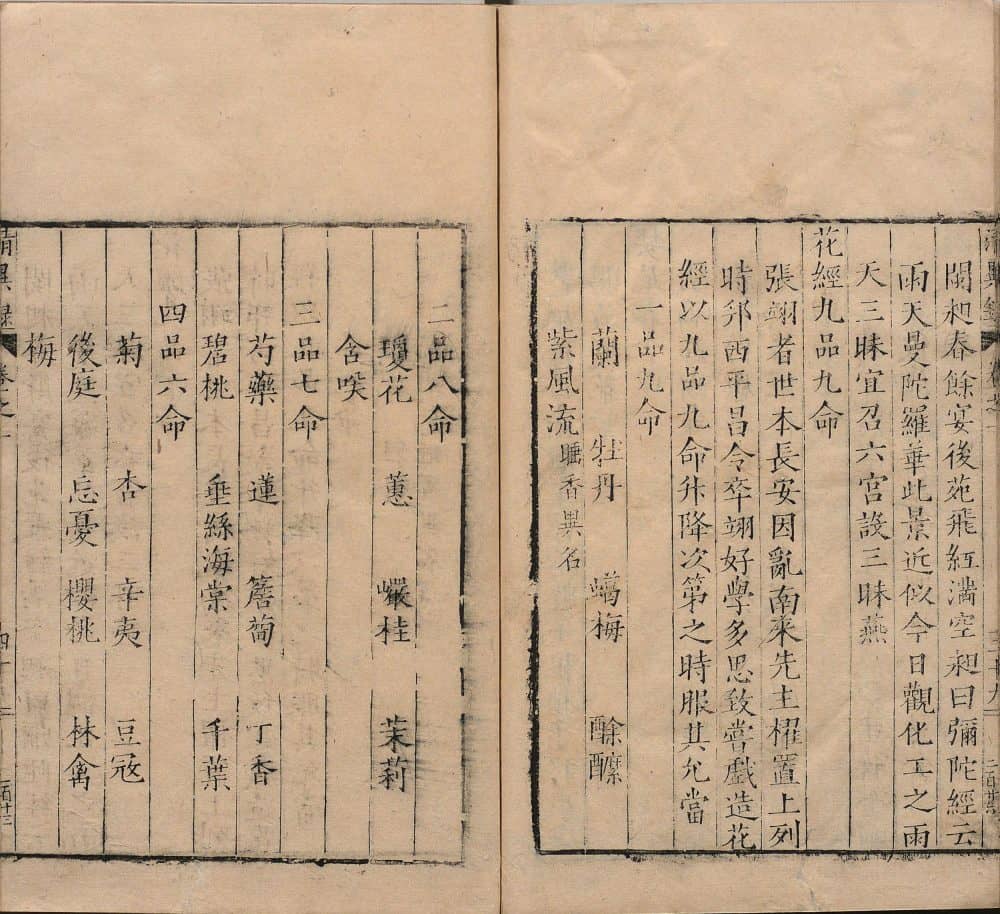 清異錄
閣昶春餘宴後苑飛紅滿空昶曰彌陀經云
雨天曼陀羅華此景近似今日觀化工之雨
天三昧宜召六宮設三昧燕
花經九品九命
張翊者世本長安因亂南來先主櫂置上列
時邦西平昌令卒翊好學多思致嘗戲造花
經以九品九命升降次第之時服其允當
一品九命
蘭 牡丹 蠟梅 酴醾
紫風流睡香異名
二品八命
瓊花 蕙 巖桂 茉莉
含咲
三品七命
芍藥 蓮 簷蔔 丁香
碧桃 垂絲海棠 千葉
四品六命
菊 杏 辛夷 豆冦
後庭 忘憂 櫻桃 林禽
梅
清異錄 卷之一